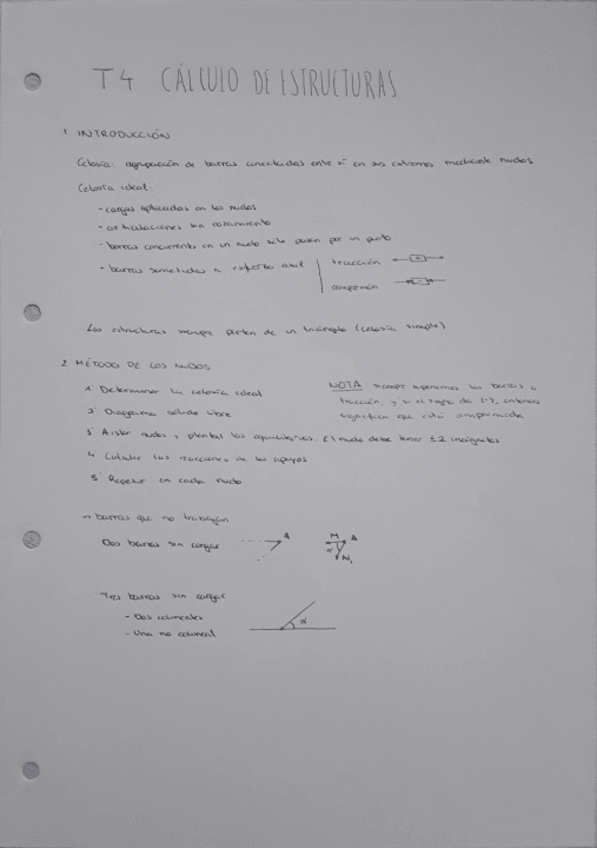 T4 CÁLCULO DE ESTRUCTURAS
1. INTRODUCCIÓN
Celosía: agrupación de barras conectadas entre sí en sus extremos mediante nudos
Celosía ideal:
- cargas aplicadas en los nudos
- articulaciones sin rozamiento
- barras concurrentes en un nudo sólo pasan por un punto
- barras sometidas a esfuerzo axil
tracción
+
compresión
-
Las estructuras siempre parten de un triángulo (celosía simple)
2. MÉTODO DE LOS NUDOS
1 Determinar la celosía ideal
2 Diagrama sólido libre
3 Aislar nudos y plantear los equilibrios. El nudo debe tener ≤2 incógnitas
4 Calcular las reacciones de los apoyos
5 Repetir en cada nudo
NOTA: siempre suponemos las barras a
tracción, y si el signo da (-), entonces
significa que está comprimida
→ barras que no trabajan
Dos barras sin cargar
A
A
α
Tres barras sin cargar
- Dos colineales
- Una no colineal
α